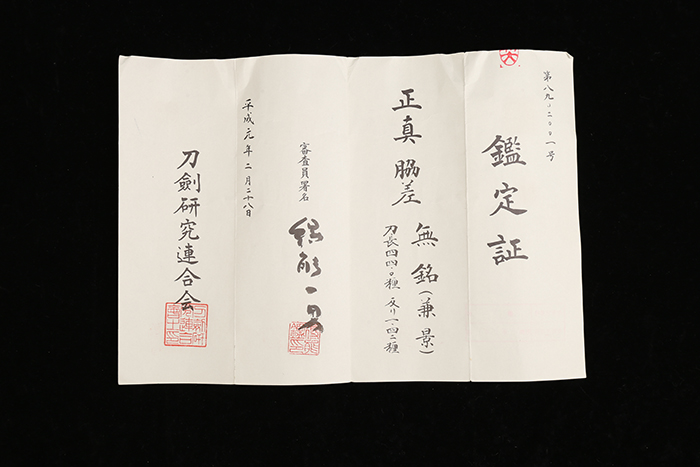 第八九-二〇〇一号
鑑定証
正真 脇差
無銘(兼景)
刃長四四.〇糎 反り一.四二糎
審査員署名
平成元年二月二十八日
刀劍研究連合会